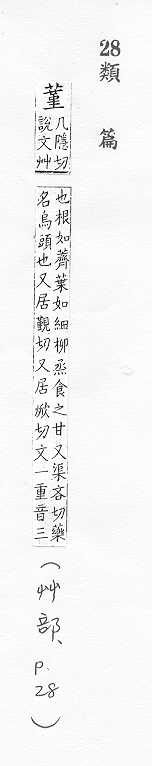 28類 篇
菫
几隱切
說文艸
也根如薺葉如細柳烝食之甘又渠吝切藥
名烏頭也又居覲切又居焮切文一重音三
(艸部、p.28)